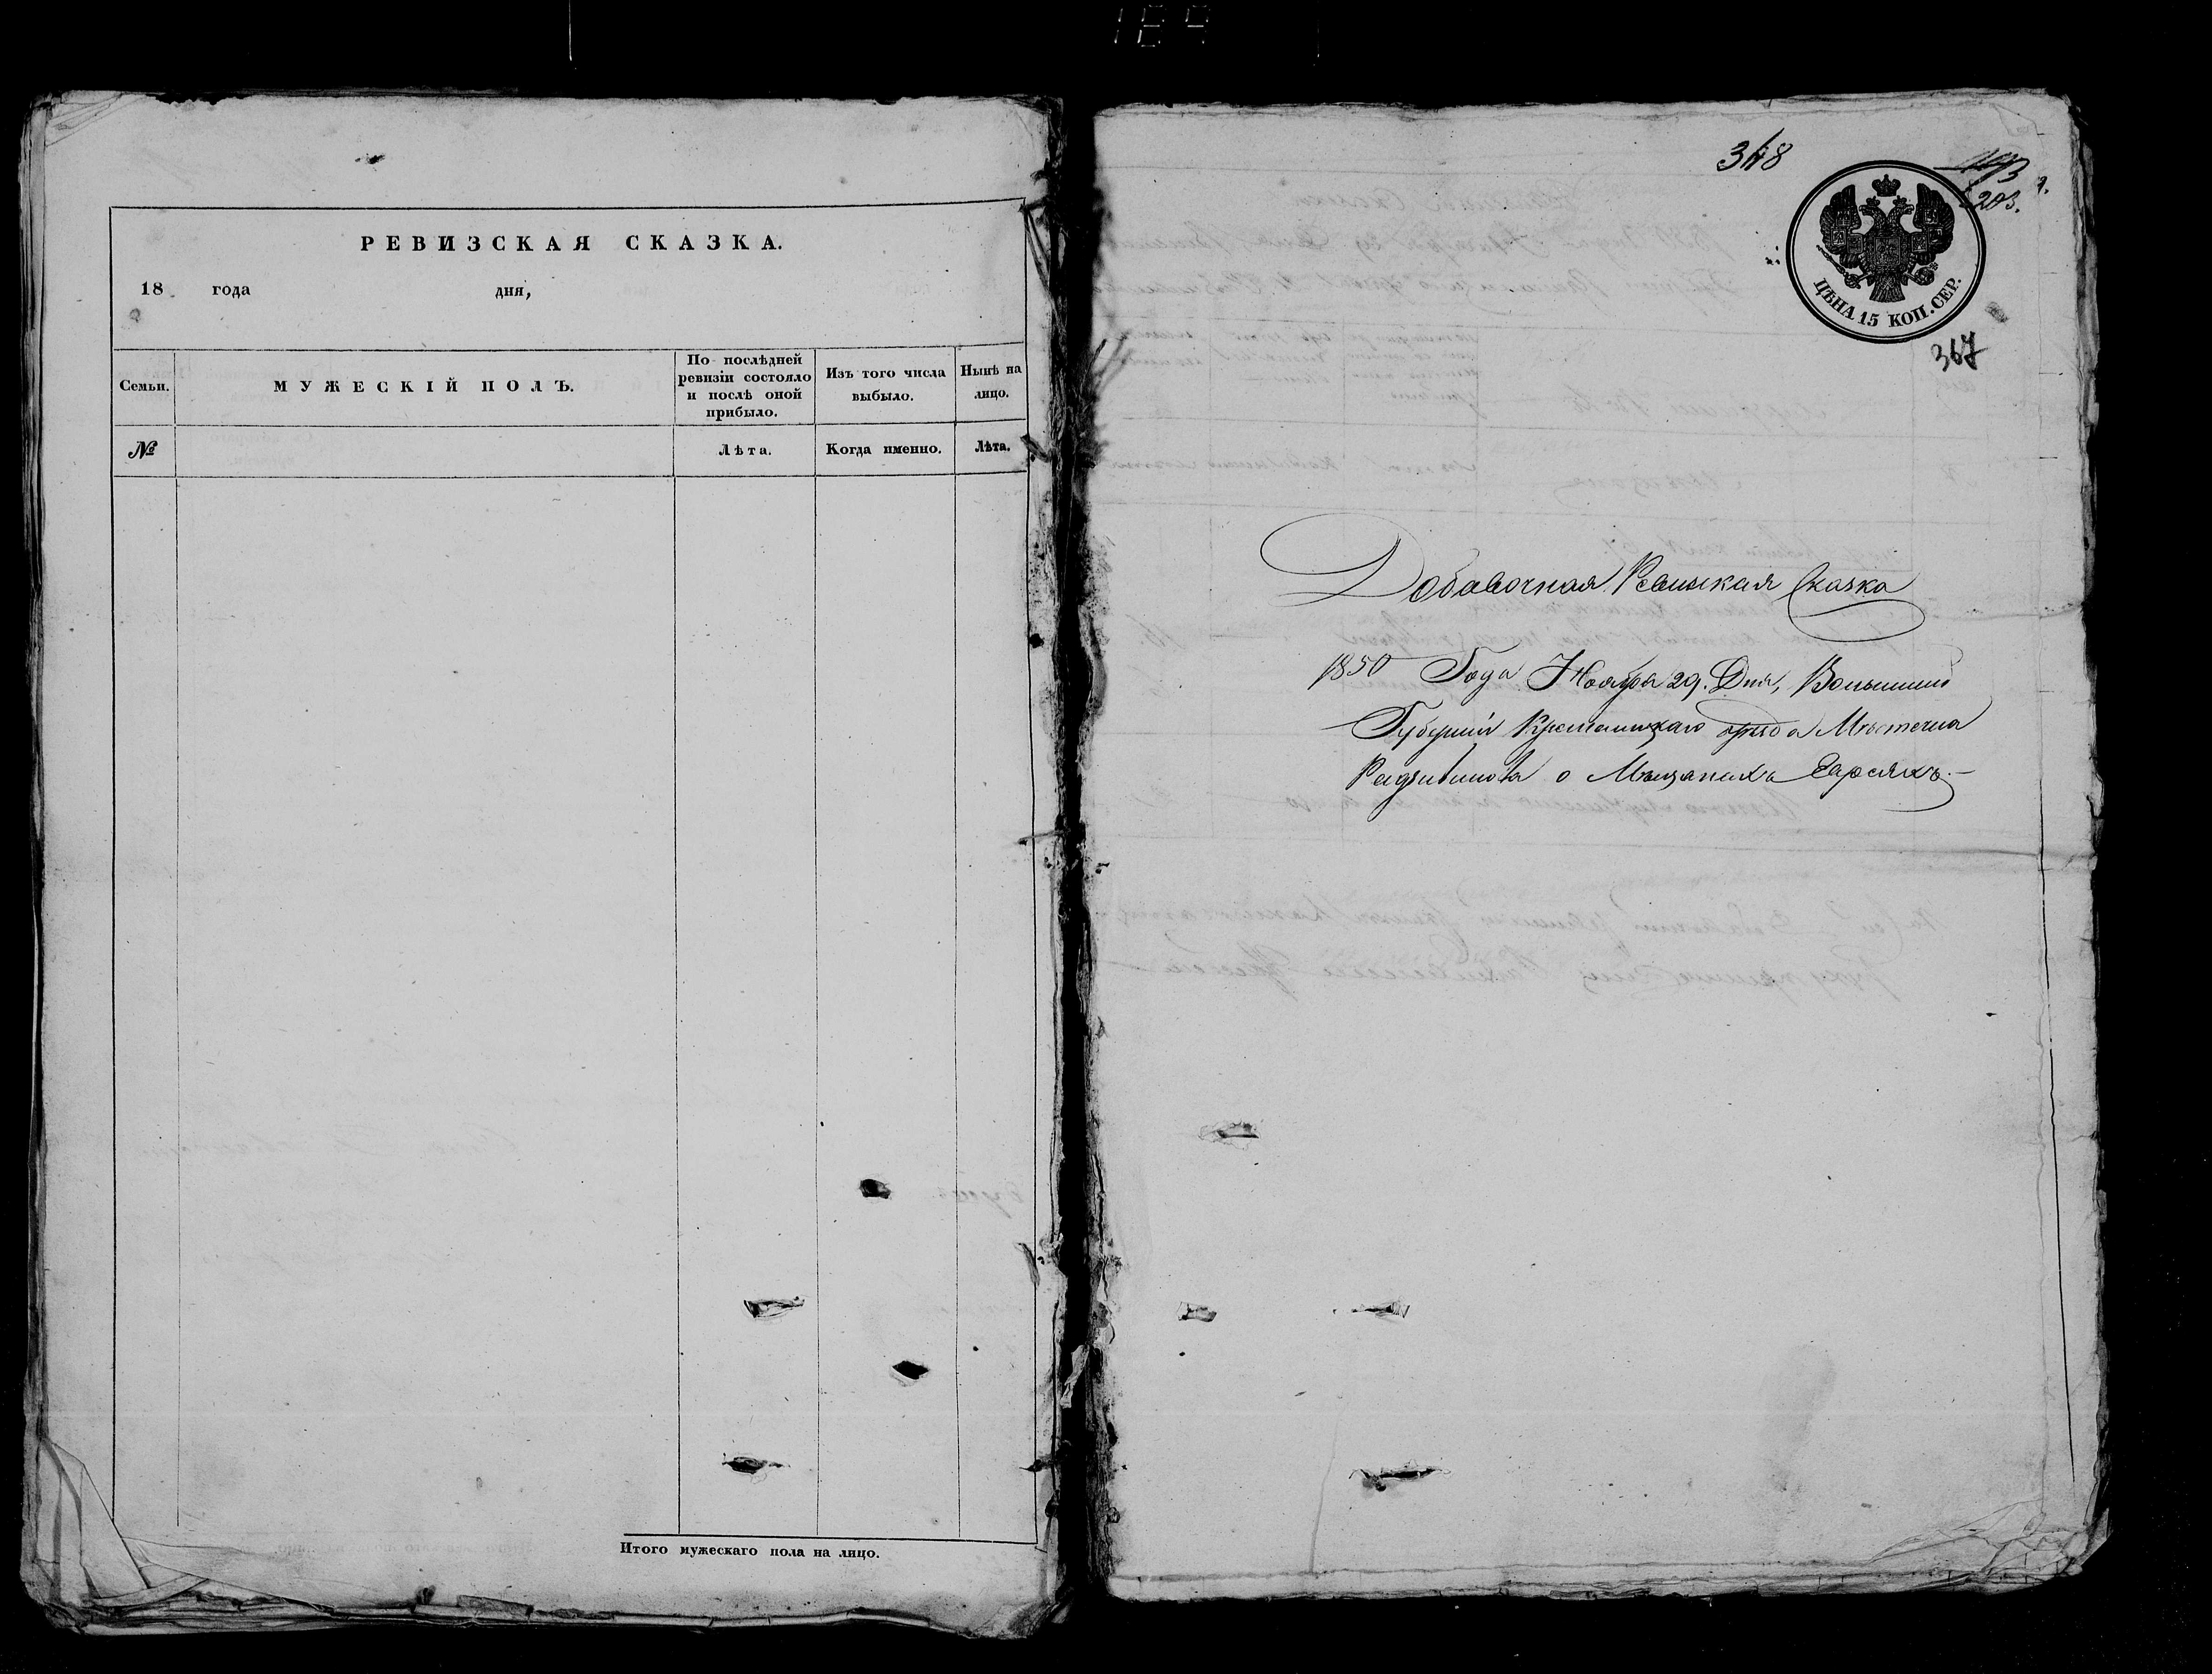 189
РЕВИЗСКАЯ СКАЗКА.
18 года дня,
Семьи.
МУЖЕСКІЙ ПОЛЪ.
По послѣдней ревизіи состояло и послѣ оной прибыло.
Изъ того числа выбыло.
Нынѣ на лицо.
№
Лѣта.
Когда именно.
Лѣта.
Итого мужескаго пола на лицо.
348
203.
ЦѢНА 15 КОП. СЕР.
367
Добавочная Ревизская Сказка
1850 Года Ноября 29. Дня, Волынской
Губерніи Кременецкаго уѣзда Мѣстечка
Радзивилова о Мѣщанахъ Евреяхъ.—